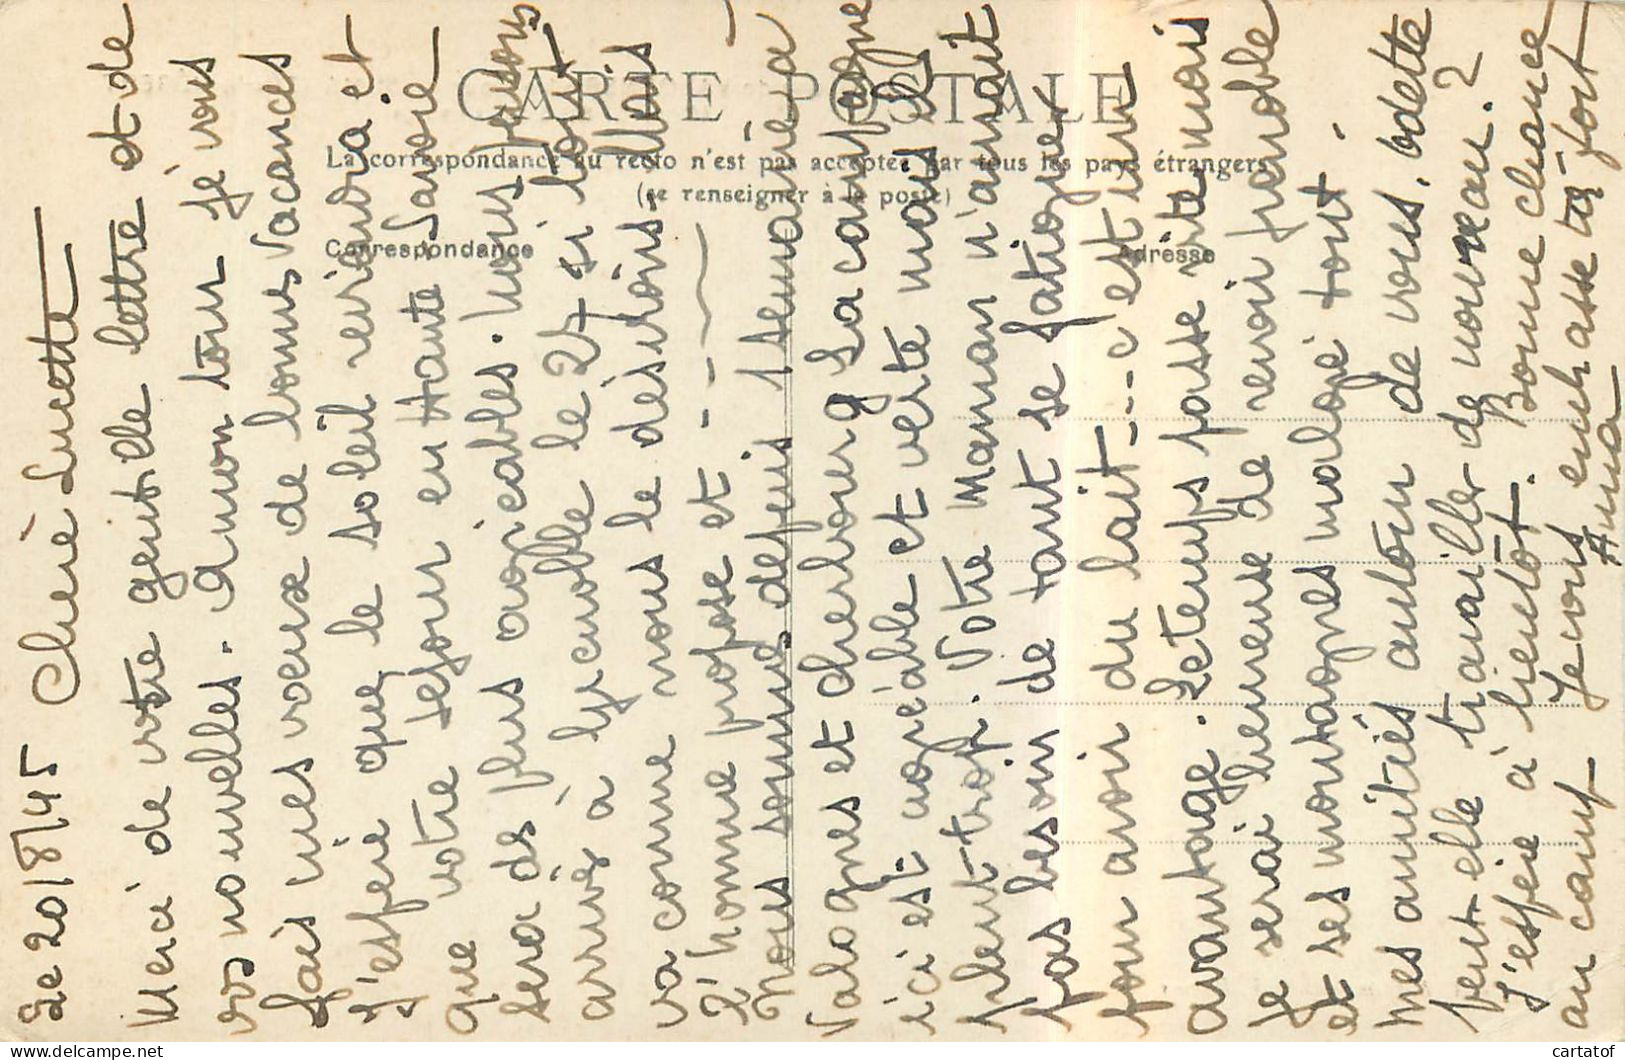 CARTE POSTALE
La correspondance au recto n'est pas acceptée par tous les pays étrangers
(se renseigner à la poste)
Correspondance
Adresse
Le 20/8/45 Cherè Lucette
Merci de votre gentille lettre et de
vos nouvelles. A mon tour je vous
fais mes voeux de bonnes vacances
J'espère que le soleil reviendra et
que votre séjour en Haute Savoie
sera des plus agréables. Nous pensons
arrivés à Grenoble le 25 si tout
va comme nous le désirons. Mais
l'homme propose et - - -
Nous sommes depuis 1 semaine à
Valognes et Cherbourg La campagne
ici est agréable et verte mais il
pleut trop. Votre Maman n'aurait
pas besoin de tant se fatiguer
pour avoir du lait - - - c'est un
avantage. Le temps passe vite mais
Je serai heureuse de revoir Grenoble
et ses montagnes malgré tout.
Mes amitiés autour de vous. Odette
peut-elle travailler de nouveau. ?
J'espère à bientôt. Bonne chance
au camp. Je vous embrasse très fort
Anna
cartatof